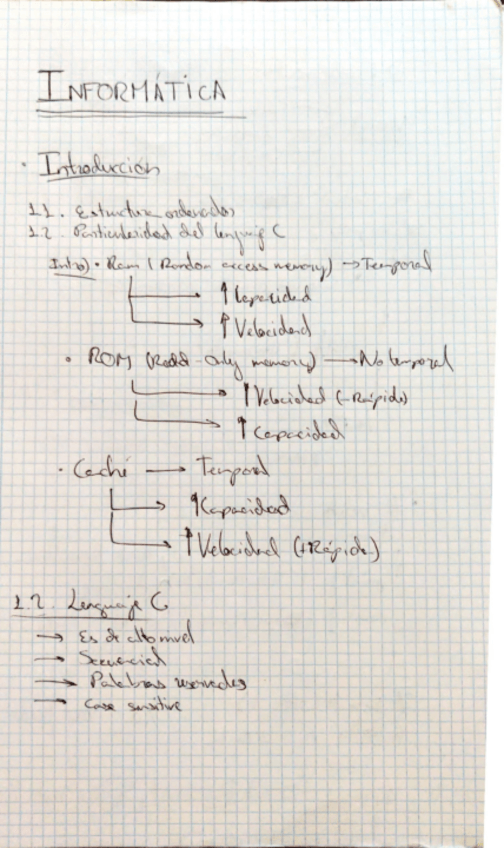 INFORMÁTICA
· Introducción
1.1. Estructura ordenador
1.2. Particularidad del lenguaje C
Intro) · Ram (Random access memory) → Temporal
→ ↑ Capacidad
→ ↑ Velocidad
· ROM (Readd-Only memory) → No temporal
→ ↑ Velocidad (-Rápido)
→ ↑ Capacidad
· Caché → Temporal
→ ↑ Capacidad
→ ↑ Velocidad (+Rápido)
1.2. Lenguaje C
→ Es de alto nivel
→ Secuencial
→ Palabras reservadas
→ Case sensitive